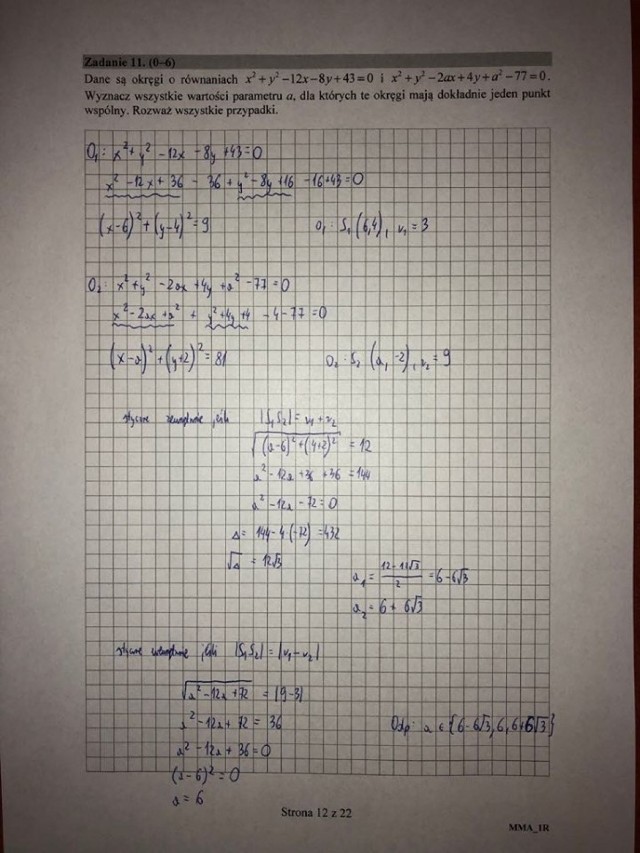 Zadanie 11. (0–6)
Dane są okręgi o równaniach x² + y² − 12x − 8y + 43 = 0 i x² + y² − 2ax + 4y + a² − 77 = 0.
Wyznacz wszystkie wartości parametru a, dla których te okręgi mają dokładnie jeden punkt
wspólny. Rozważ wszystkie przypadki.
O₁: x² + y² − 12x − 8y + 43 = 0
x² − 12x + 36 − 36 + y² − 8y + 16 − 16 + 43 = 0
(x−6)² + (y−4)² = 9 O₁: S₁(6,4), r₁ = 3
O₂: x² + y² − 2ax + 4y + a² − 77 = 0
x² − 2ax + a² + y² + 4y + 4 − 4 − 77 = 0
(x−a)² + (y+2)² = 81 O₂: S₂(a, −2), r₂ = 9
styczne zewnętrznie jeśli |S₁S₂| = r₁ + r₂
√((a−6)² + (4+2)²) = 12
a² − 12a + 36 + 36 = 144
a² − 12a − 72 = 0
Δ = 144 − 4·(−72) = 432
√Δ = 12√3
a₁ = (12 − 12√3)/2 = 6 − 6√3
a₂ = 6 + 6√3
styczne wewnętrznie jeśli |S₁S₂| = |r₁ − r₂|
√(a² − 12a + 72) = |9 − 3|
a² − 12a + 72 = 36 Odp: a ∈ {6 − 6√3, 6, 6 + 6√3}
a² − 12a + 36 = 0
(a − 6)² = 0
a = 6
Strona 12 z 22
MMA_1R